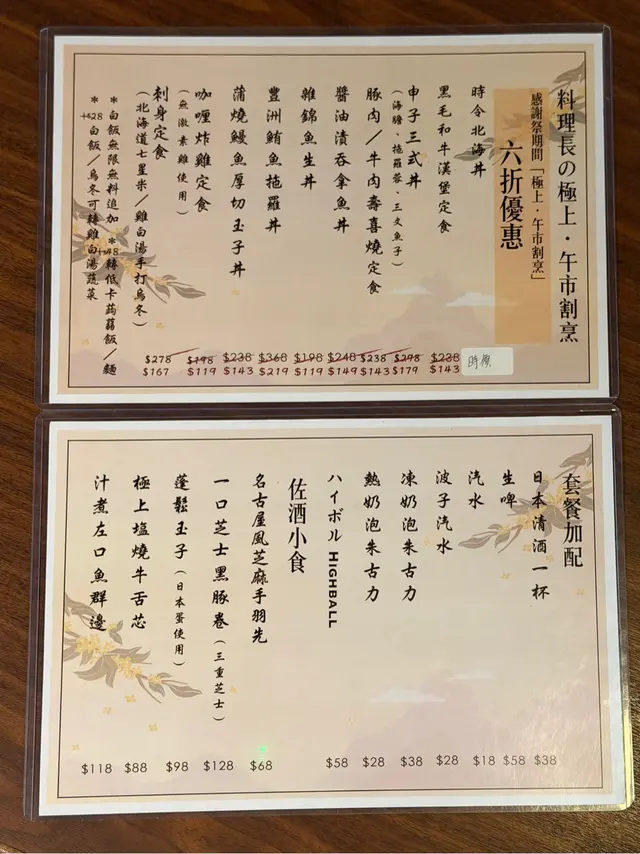 料理長の極上・午市割烹
感謝祭期間「極上・午市割烹」
六折優惠
時令北海丼 時價
黑毛和牛漢堡定食 $238 $143
申子三式丼 $298 $179
(海膽、拖羅蓉、三文魚子)
豚肉/牛肉壽喜燒定食 $238 $143
醬油漬吞拿魚丼 $248 $149
雜錦魚生丼 $198 $119
豐洲鮪魚拖羅丼 $368 $219
蒲燒鰻魚厚切玉子丼 $238 $143
咖喱炸雞定食 $198 $119
(無激素雞使用)
刺身定食 $278 $167
(北海道七星米/雞白湯手打烏冬)
*白飯無限無料追加 *+48轉低卡蒟蒻飯/麵
*+28白飯/烏冬可轉雞白湯蔬菜
套餐加配
日本清酒一杯 $38
生啤 $58
汽水 $18
波子汽水 $28
凍奶泡朱古力 $38
熱奶泡朱古力 $28
ハイボル HIGHBALL $58
佐酒小食
名古屋風芝麻手羽先 $68
一口芝士黑豚卷(三重芝士) $128
蓬鬆玉子(日本蛋使用) $98
極上塩燒牛舌芯 $88
汁煮左口魚群邊 $118